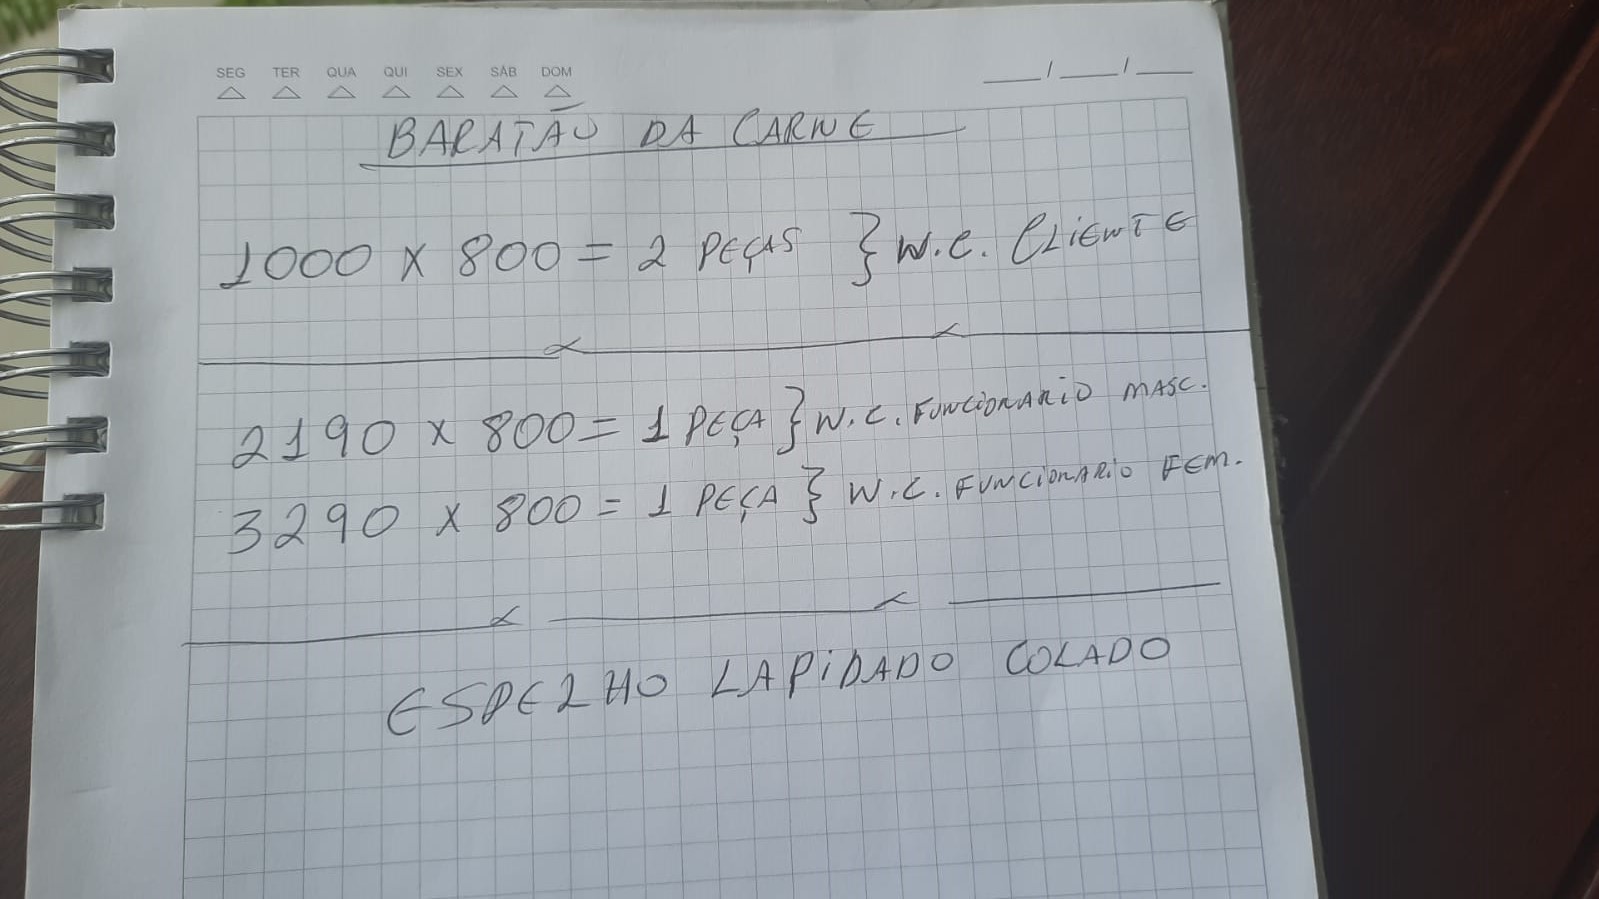 SEG TER QUA QUI SEX SÁB DOM
__/__/__
BARATÃO DA CARNE
1000 x 800 = 2 PEÇAS } W.C. CLIENTE
2190 x 800 = 1 PEÇA } W.C. FUNCIONARIO MASC.
3290 x 800 = 1 PEÇA } W.C. FUNCIONARIO FEM.
ESPELHO LAPIDADO COLADO